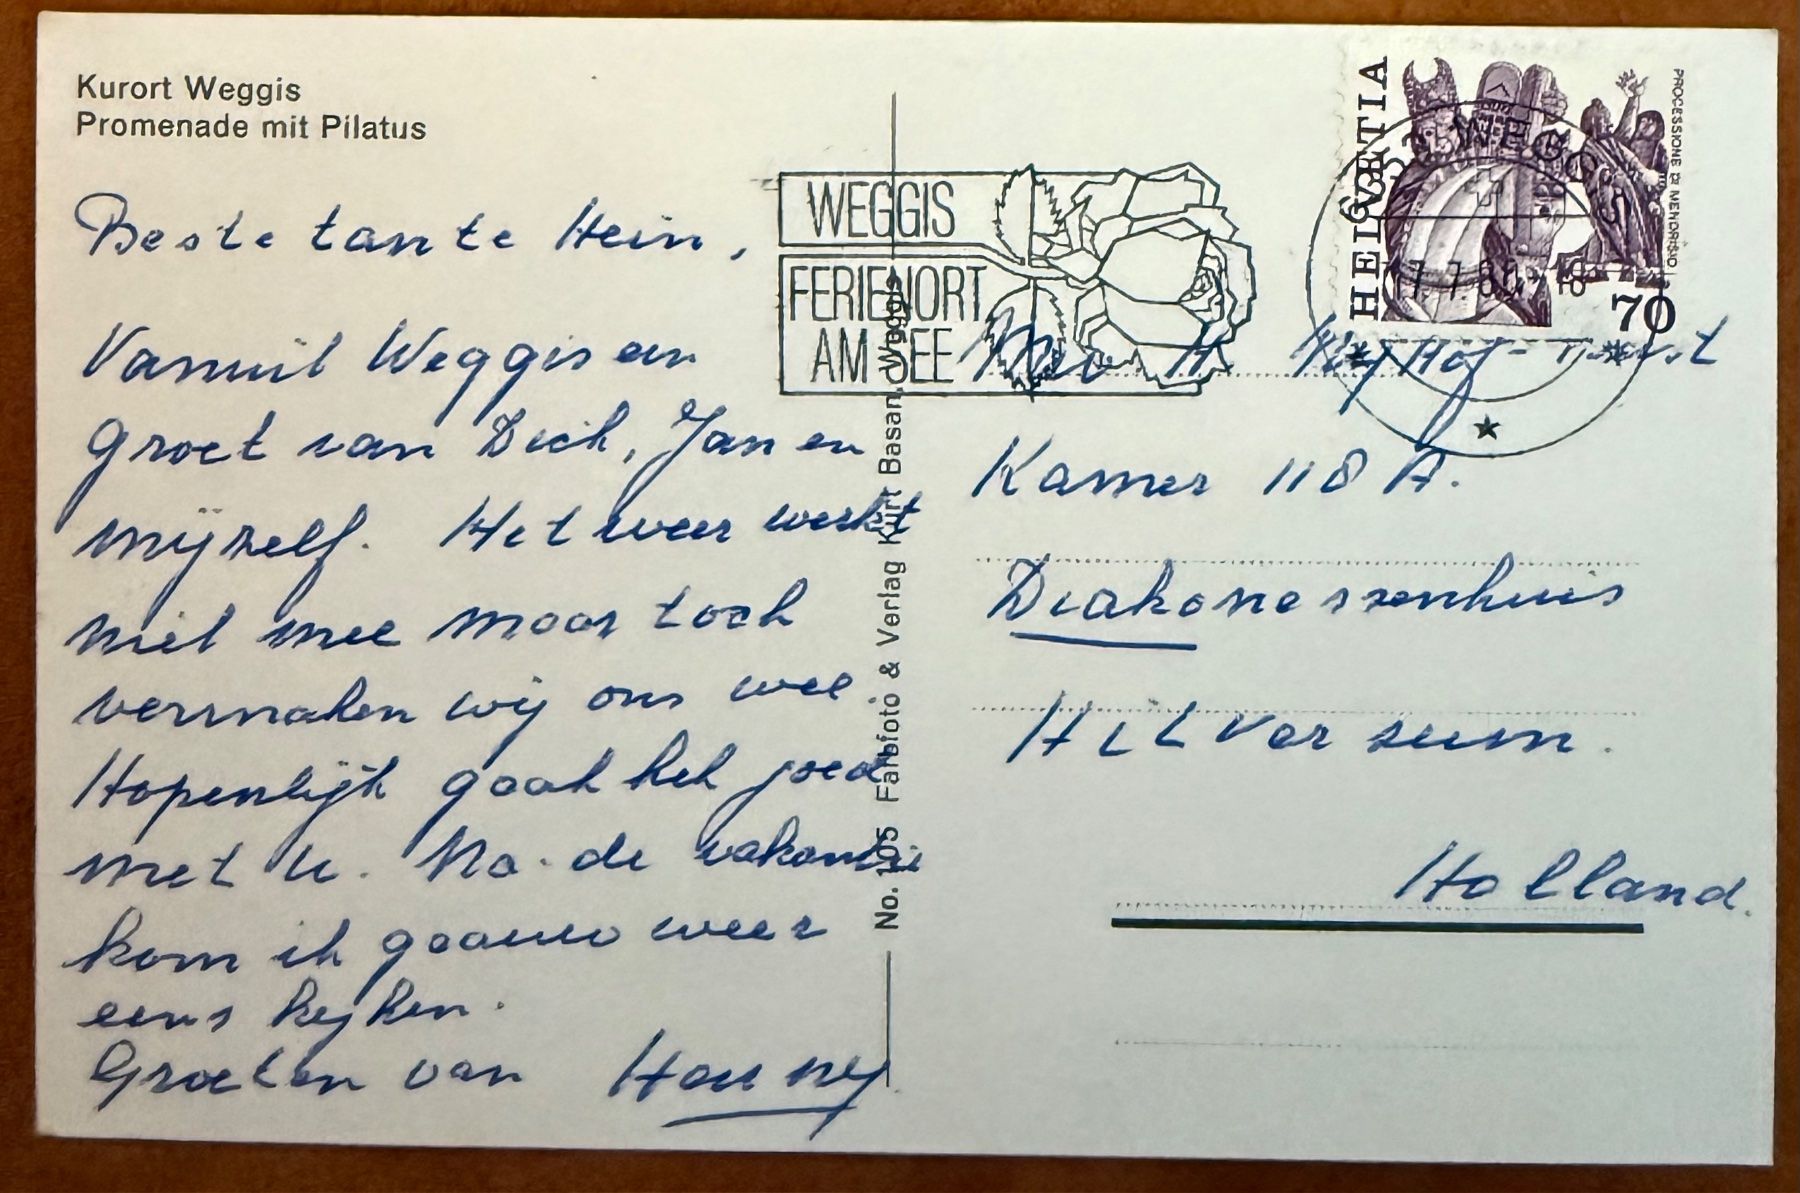 Kurort Weggis
Promenade mit Pilatus
Beste tante Hein,
Vanuit Weggis een
groet van Dick, Jan en
mijzelf. Het weer werkt
niet mee maar toch
vermaken wij ons wel.
Hopenlijk gaat het goed
met U. Na de vakantie
kom ik gaauw weer
eens kijken.
Groeten van Hanny
No. 105 Farbfoto & Verlag Kurt Basan, Weggis
WEGGIS
FERIENORT
AM SEE
HELVETIA
PROCESSIONE DI MENDRISIO
70
6353 WEGGIS
17.7.80 - 18
Mev H.
Kamer 118 A.
Diakonessenhuis
Hilversum.
Holland.